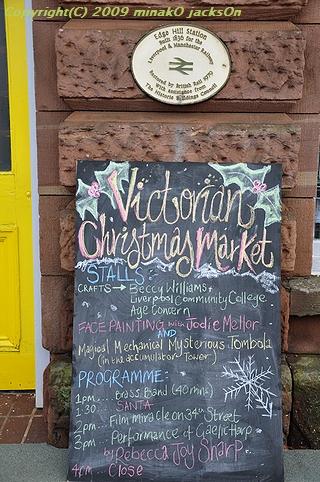 Copyright(C) 2009 minakO jacksOn
Edge Hill Station
Built 1836 for the
Liverpool & Manchester Railway
Restored by British Rail 1979
With Assistance from
The Historic Buildings Council
Victorian
Christmas Market
STALLS:
CRAFTS → Beccy Williams,
Liverpool Community College
Age Concern
FACE PAINTING with Jodie Mellor
AND
Magical Mechanical Mysterious Tombola
(in the accumulator Tower)
PROGRAMME:
1pm.... Brass Band (40 mins)
1:30 .... SANTA
2pm... Film miracle on 34th Street
3pm... Performance of Gaelic Harp
by Rebecca Joy Sharp
4pm... Close